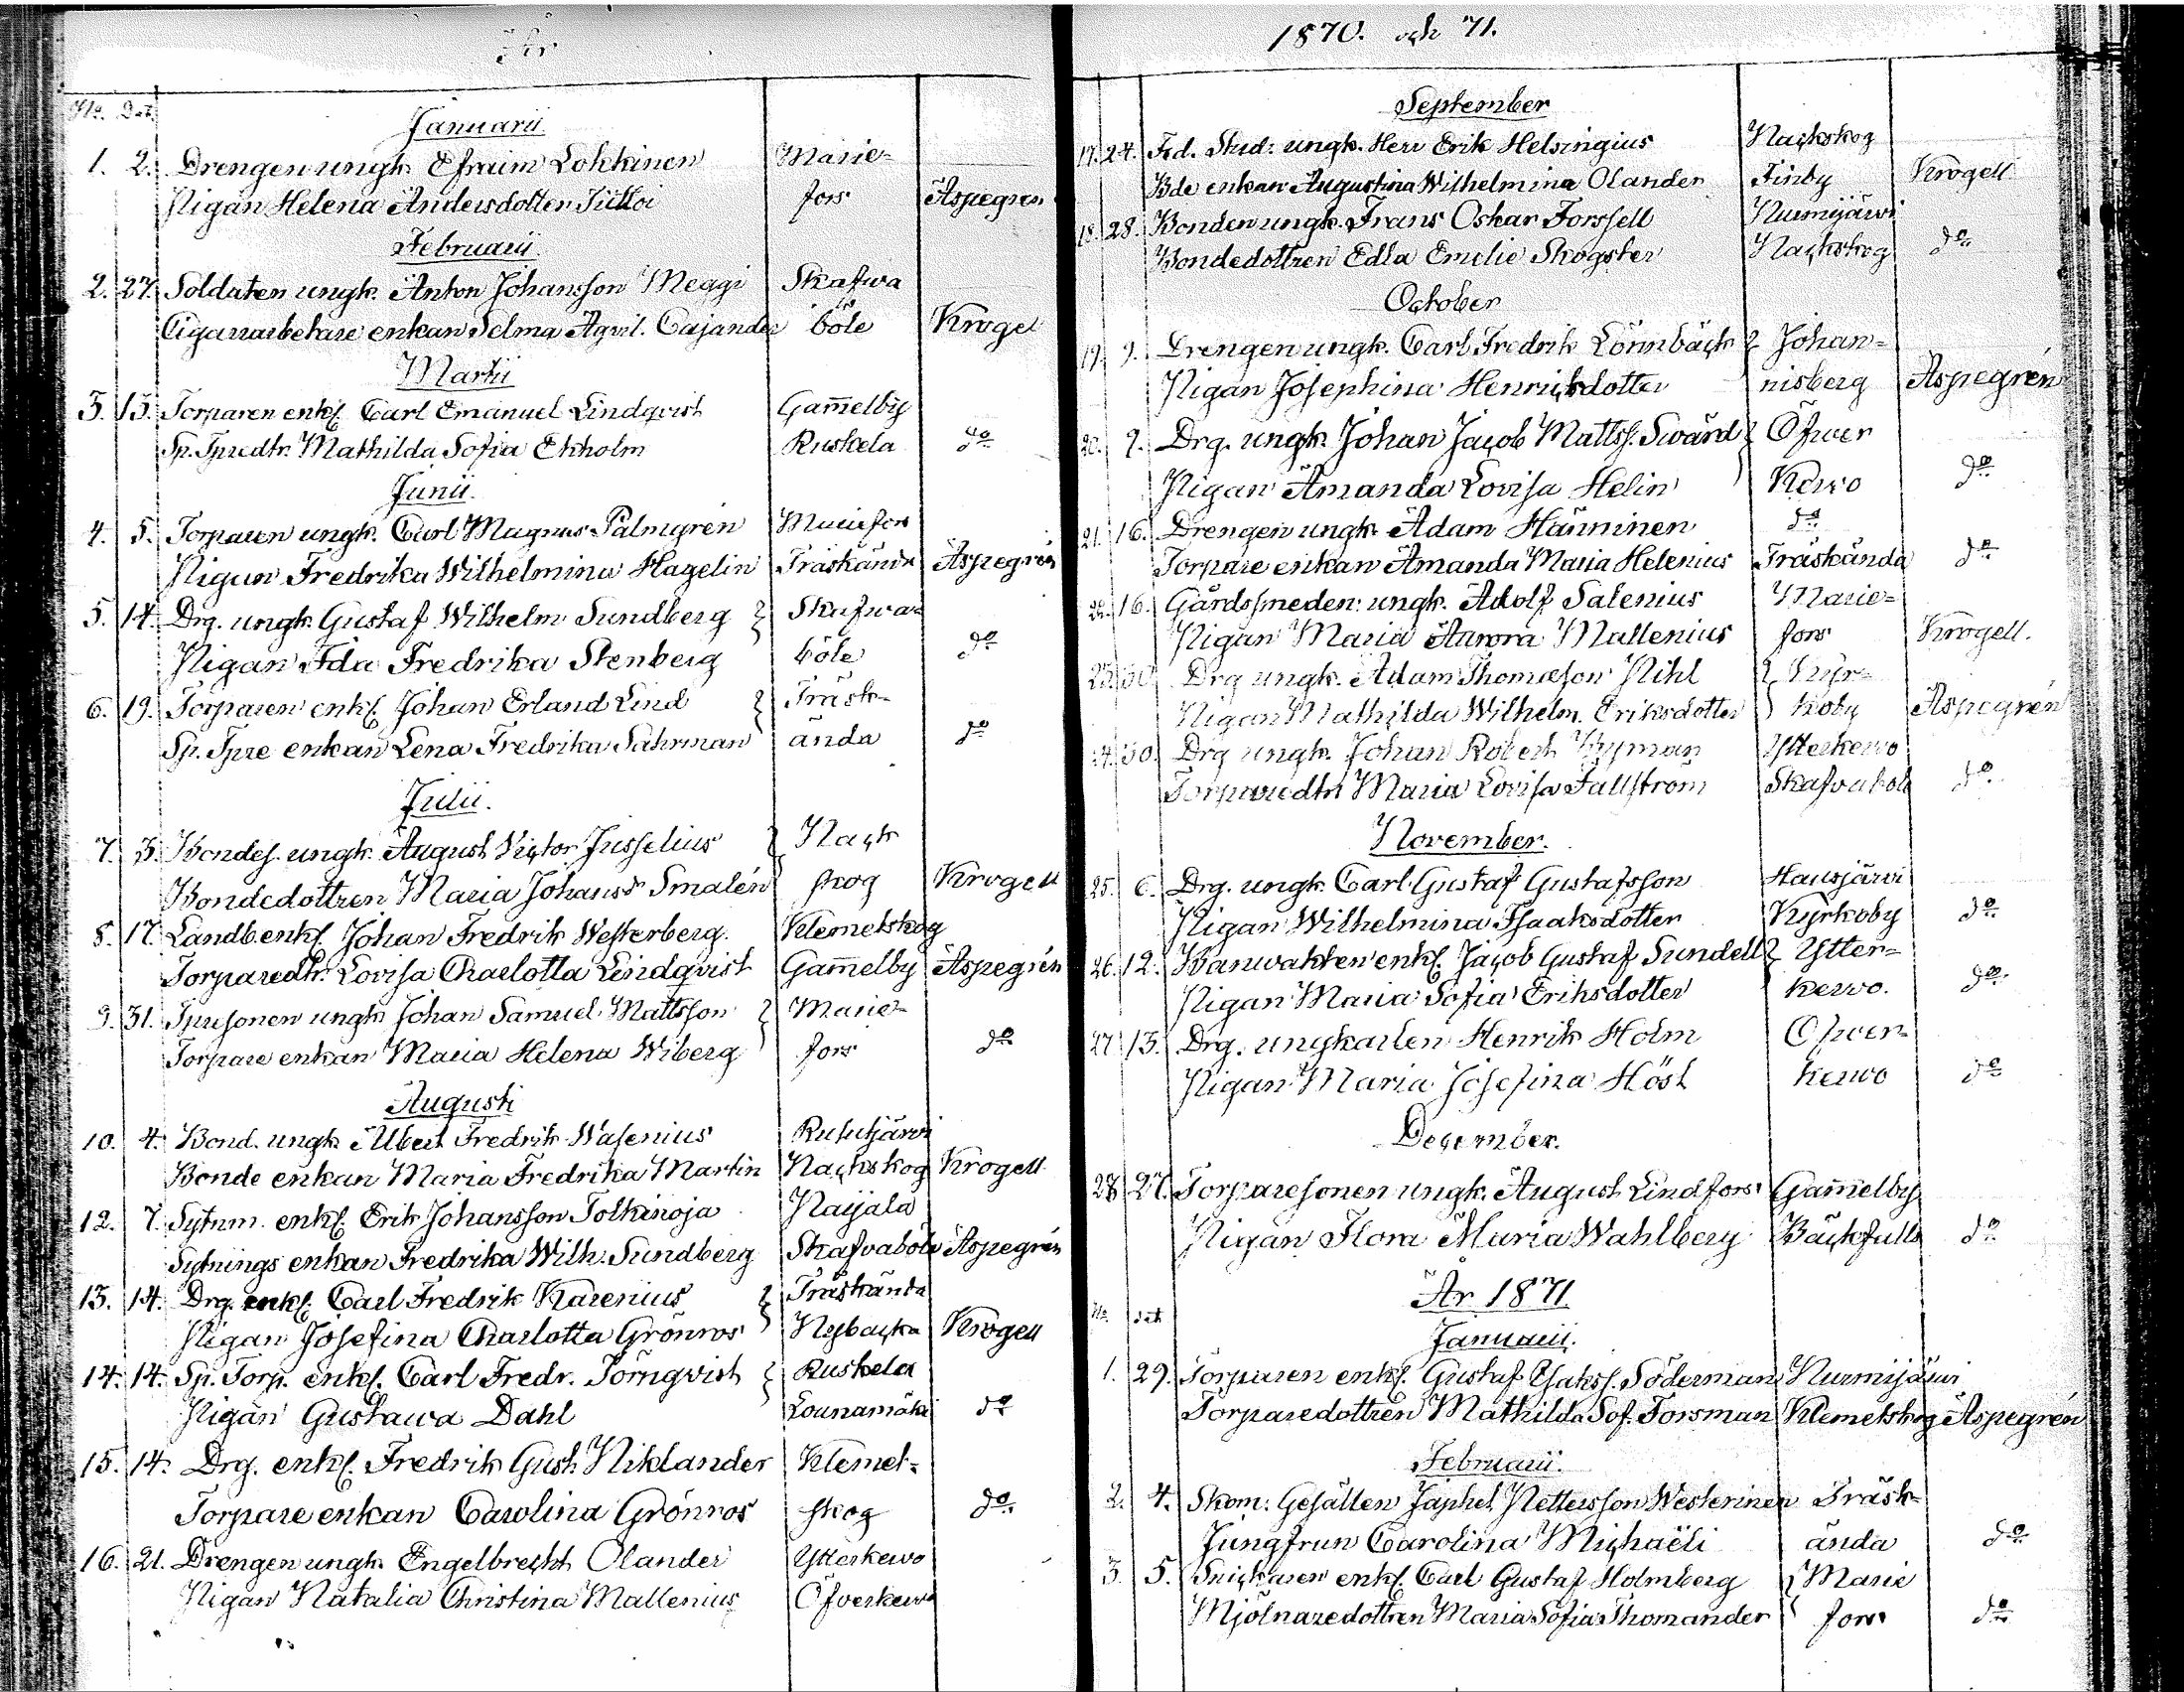 År
No. Dat.
Januarii
1. 2. Drengen ungk. Efraim Lokkinen Marie-
Pigan Helena Andersdotter fors Aspegren
Februarii.
2. 27. Soldaten ungk. Anton Johansson Meggi Skafwa
Cigarrarbetare enkan Selma Agril. Cajander böle Krogel
Martii
3. 13. Torparen enkl. Carl Emanuel Lindqvist Gam̄elby
Sp. Tpredtr. Mathilda Sofia Ekholm Ruskela do
Junii.
4. 5. Torparen ungk. Carl Magnus Palmgren Mariefors
Pigan Fredrika Wilhelmina Hagelin Träskända Aspegrén
5. 14. Drg. ungk. Gustaf Wilhelm Sundberg Skafwa-
Pigan Ida Fredrika Stenberg böle do
6. 19. Torparen enkl. Johan Erland Lind Träsk-
Sp. Tpre enkan Lena Fredrika Sahrman ända do
Julii.
7. 3. Bondes. ungk. August Victor Jusselius Nack
Bondedottren Maria Johansdr Smalén skog Krogell
8. 17. Landb. enkl. Johan Fredrik Westerberg. Klemetskog
Torparedtr. Lovisa Charlotta Lindqvist Gam̄elby Aspegrén
9. 31. Tpresonen ungk. Johan Samuel Mattsson Marie-
Torpare enkan Maria Helena Wiberg fors do
Augusti
10. 4. Bond. ungk. Albert Fredrik Wasenius Rusutjärvi
Bonde enkan Maria Fredrika Martin Nackskog Krogell
12. 7. Sytnm. enkl. Erik Johansson Tolkinoja Naijala
Sytnings enkan Fredrika Wilh. Sundberg Skafvaböle Aspegrén
13. 14. Drg. enkl. Carl Fredrik Karenius Träskända
Pigan Josefina Charlotta Grönros Nybacka Krogell
14. 14. Sp. Torp. enkl. Carl Fredr. Törnqvist Ruskela
Pigan Gustawa Dahl Lounamäki do
15. 14. Drg. enkl. Fredrik Gust. Niklander Klemet-
Torpare enkan Carolina Grönros skog do
16. 21. Drengen ungk. Engelbrecht Olander Ytterkervo
Pigan Natalia Christina Mallenius Öfverkervo
1870. och 71.
September
17. 24. Fd. Stud: ungk. Herr Erik Helsingius Nackskog
Bde enkan Augustina Wilhelmina Olander Finby Krogell
18. 28. Bonden ungk. Frans Oskar Forssell Nurmijärvi
Bondedottren Edla Emelie Skogster Nackskog do
October
19. 9. Drengen ungk. Carl Fredrik Lönnbäck Johan-
Pigan Josephina Henricksdotter nisberg Aspegrén
20. 9. Drg. ungk. Johan Jacob Mattss. Swärd Öfwer
Pigan Amanda Lovisa Helin Kervo do
21. 16. Drengen ungk. Adam Hänninen do
Torpare enkan Amanda Maria Helenius Träskända do
22. 16. Gårdssmeden: ungk. Adolf Salenius Marie-
Pigan Maria Aurora Mallenius fors Krogell.
23. 30. Drg ungk. Adam Thomæson Pihl Kyr-
Pigan Mathilda Wilhelm. Eriksdotter koby Aspegrén
24. 30. Drg ungk. Johan Robert Nyman Ytterkervo
Torparedtr Maria Lovisa Fallström Skafvaböle do
November.
25. 6. Drg. ungk. Carl Gustaf Gustafsson Hausjärvi
Pigan Wilhelmina Isaaksdotter Kyrkoby do
26. 12. Banwakten enkl. Jacob Gustaf Sundell Ytter-
Pigan Maria Sofia Eriksdotter kervo. do
27. 13. Drg. ungkarlen Henrik Holm Öfver-
Pigan Maria Josefina Höst kervo do
December.
28 27. Torparesonen ungk. August Lindfors Gam̄elby
Pigan Flora Maria Wahlberg Bäckfulla do
År 1871.
No. dat
Januarii.
1. 29. Torparen enkl. Gustaf Isakss. Söderman Nurmijärvi
Torparedottren Mathilda Sof. Forsman Klemetskog Aspegrén
Februarii.
2. 4. Skom: Gesällen Japhet Pettersson Westerinen Träsk-
Jungfrun Carolina Michaëli ända do
3. 5. Snickaren enkl. Carl Gustaf Holmberg Marie
Mjölnaredottren Maria Sofia Thomander fors do